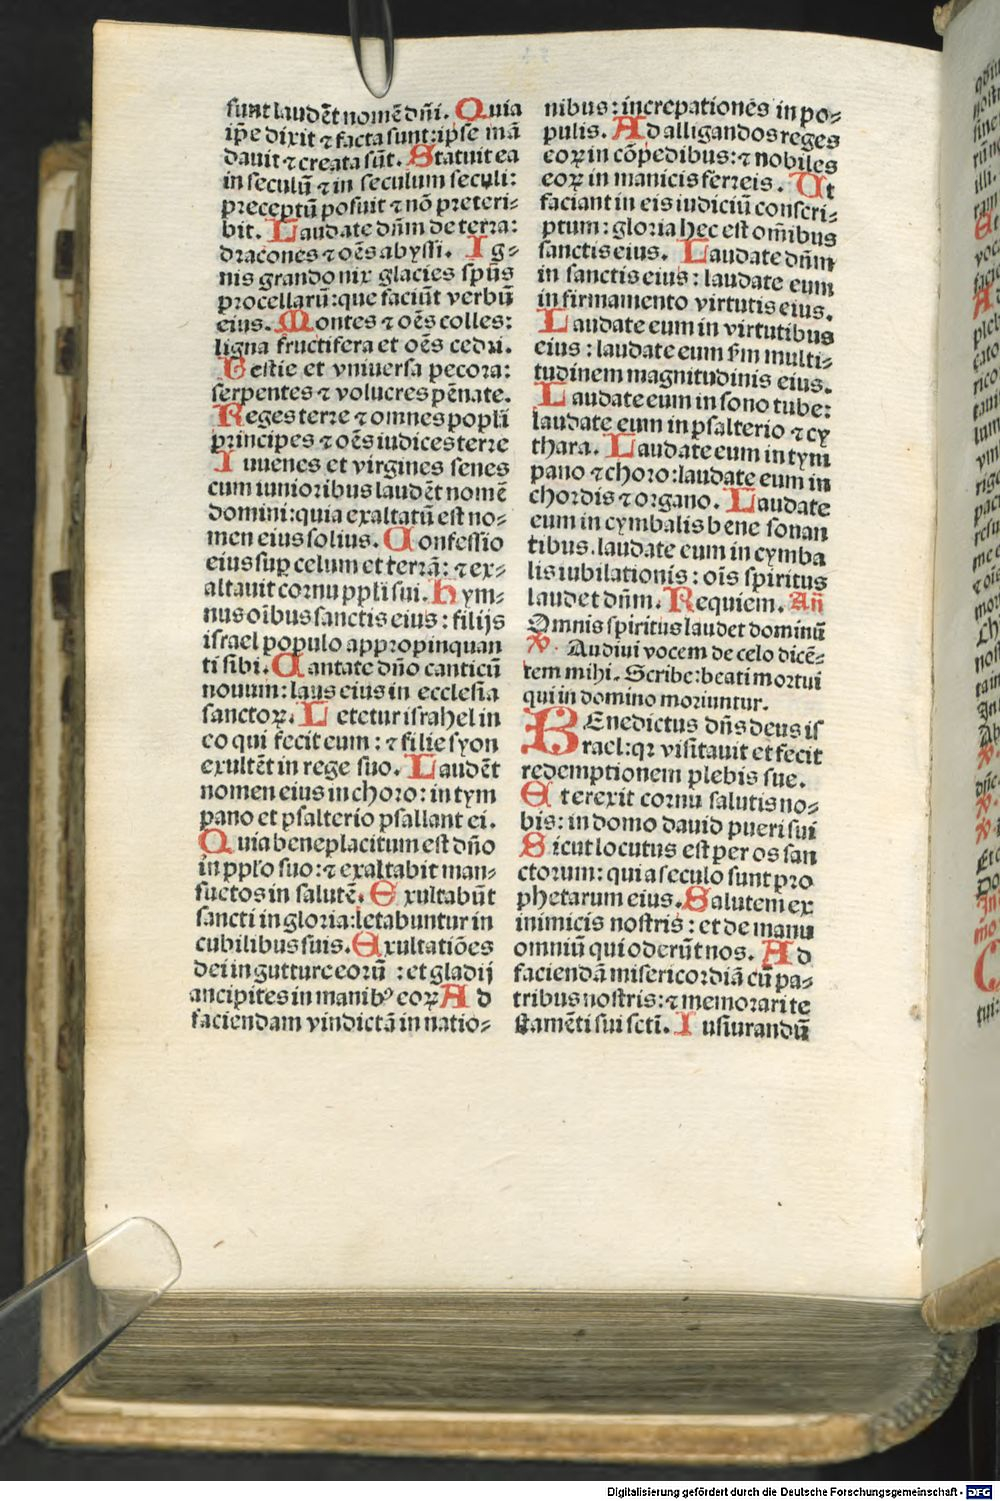 sunt laudēt nomē dn̄i. Quia
ip̄e dixit ⁊ facta sunt: ipse mā
dauit ⁊ creata sūt. Statuit ea
in seculū ⁊ in seculum seculi:
preceptū posuit ⁊ nō preteri⸗
bit. Laudate dn̄m de terra:
dracones ⁊ oēs abyssi. Ig⸗
nis grando nix glacies sp̄us
procellarū: que faciūt verbū
eius. Montes ⁊ oēs colles:
ligna fructifera et oēs cedri.
Bestie et vniuersa pecora:
serpentes ⁊ volucres pēnate.
Reges terre ⁊ omnes popl̄i
principes ⁊ oēs iudices terre
Iuuenes et virgines senes
cum iunioribus laudēt nomē
domini: quia exaltatū est no⸗
men eius solius. Confessio
eius suꝑ celum et terrā: ⁊ ex⸗
altauit cornu ppl̄i sui. Hym⸗
nus oībus sanctis eius: filijs
israel populo appropinquan
ti sibi. Cantate dn̄o canticū
nouum: laus eius in ecclesia
sanctoꝝ. Letetur israhel in
eo qui fecit eum: ⁊ filie syon
exultēt in rege suo. Laudēt
nomen eius in choro: in tym
pano et psalterio psallant ei.
Quia beneplacitum est dn̄o
in ppl̄o suo: ⁊ exaltabit man⸗
suetos in salutē. Exultabūt
sancti in gloria: letabuntur in
cubilibus suis. Exultatiōes
dei in gutture eorū: et gladij
ancipites in manibꝰ eoꝝ Ad
faciendam vindictā in natio⸗
nibus: increpationes in po⸗
pulis. Ad alligandos reges
eoꝝ in cōpedibus: ⁊ nobiles
eoꝝ in manicis ferreis. Ut
faciant in eis iudiciū conscri⸗
ptum: gloria hec est om̄ibus
sanctis eius. Laudate dn̄m
in sanctis eius: laudate eum
in firmamento virtutis eius.
Laudate eum in virtutibus
eius: laudate eum sm̄ multi⸗
tudinem magnitudinis eius.
Laudate eum in sono tube:
laudate eum in psalterio ⁊ cy
thara. Laudate eum in tym
pano ⁊ choro: laudate eum in
chordis ⁊ organo. Laudate
eum in cymbalis bene sonan
tibus. laudate eum in cymba
lis iubilationis: oīs spiritus
laudet dn̄m. Requiem. Añ
Omnis spiritus laudet dominū
℣. Audiui vocem de celo dicē⸗
tem mihi. Scribe: beati mortui
qui in domino moriuntur.
BEnedictus dn̄s deus is
rael: qꝛ visitauit et fecit
redemptionem plebis sue.
Et erexit cornu salutis no⸗
bis: in domo dauid pueri sui
Sicut locutus est per os san
ctorum: qui a seculo sunt pro
phetarum eius. Salutem ex
inimicis nostris: et de manu
omniū qui oderūt nos. Ad
faciendā misericordiā cū pa⸗
tribus nostris: ⁊ memorari te
stamēti sui sctī. Iusiurandū
Digitalisierung gefördert durch die Deutsche Forschungsgemeinschaft - DFG